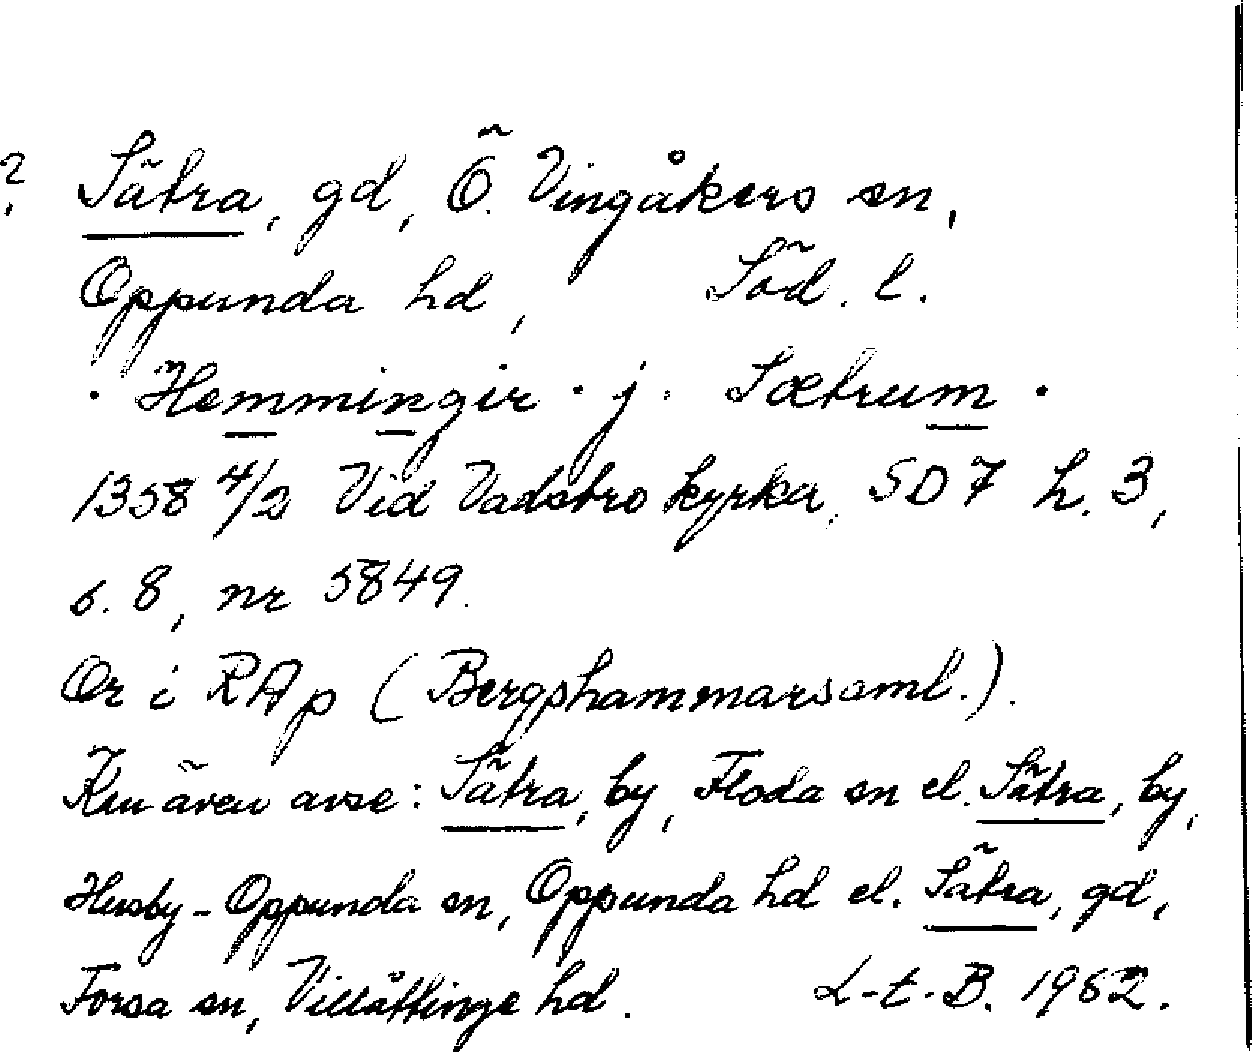 ? Sätra, gd, Ö. Vingåkers sn,
Oppunda hd, Söd. l.
· Hemmingir · j. Sætrum ·
1358 4/2 Vid Vadsbro kyrka, SD 7 h. 3,
s. 8, nr 5849.
Or i RAp (Bergshammarsaml.).
Kan även avse: Sätra, by, Floda sn el. Sätra, by,
Husby-Oppunda sn, Oppunda hd el. Sätra, gd,
Forssa sn, Villåttinge hd. L-t-B. 1962.